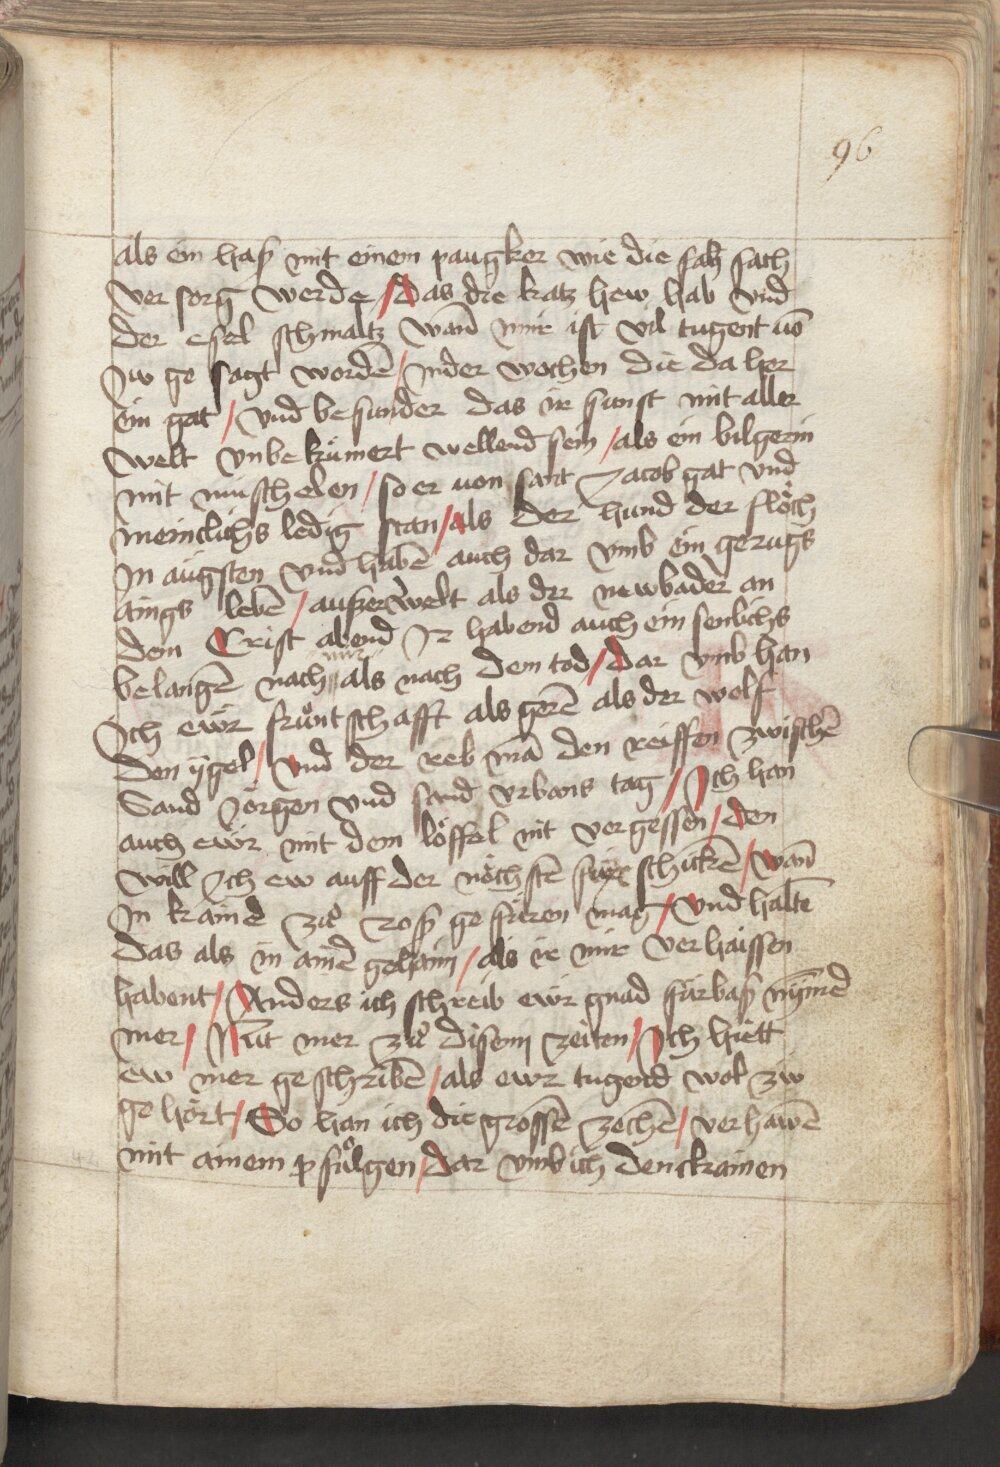 96
als ein hasß mit einem paugker wie die sach sach
ver sorg werde / Das die katz hew hab vnd
der esel schmaltz wañ mir ist vil tugent uõ
Jw ge sagt wordẽ / Jnder wochen die da her
ein gat / vnd be sunder das ir sunst mit aller
welt vnbe kümert wellend sein / als ein bilgerin
mit muschelen / so er uon sant Jacob gat vnd
meinclichs ledig stan / als der hund der flöch
Jn augsten vnd habẽ auch dar vmb ein gerugs
aings lebẽ / auszer welt als der newbader an
dem Crist abend Jr habend auch ein senlichs
belangẽ nach mir als nach dem tod / Dar vmb han
Jch ewr früntschafft als gerẽ als der wolf
den ygel / vnd der reb mã den reiffen zwischẽ
Sand Jörgen vnd sand vrbans tag / Jch han
auch ewr mit dem löffel nit vergessen / den
will Jch ew auff der nöchstẽ schickẽ / wañ
Jn kainer zů rosß ge füren mag / vnd haltẽ
das als in ainẽ gehaim / als ir mir verhaissen
habent / Anders ich schreib ewr gnad fürbasß nÿmer
mer / Nüt mer zů disenn zeiten / Jch hiett
ew mer ge schribẽ / als ewr tugend wol zw
ge hört / So han ich die grossẽ zechẽ / verhawẽ
mit ainem pfůlgen / dar vmb ich den krainen